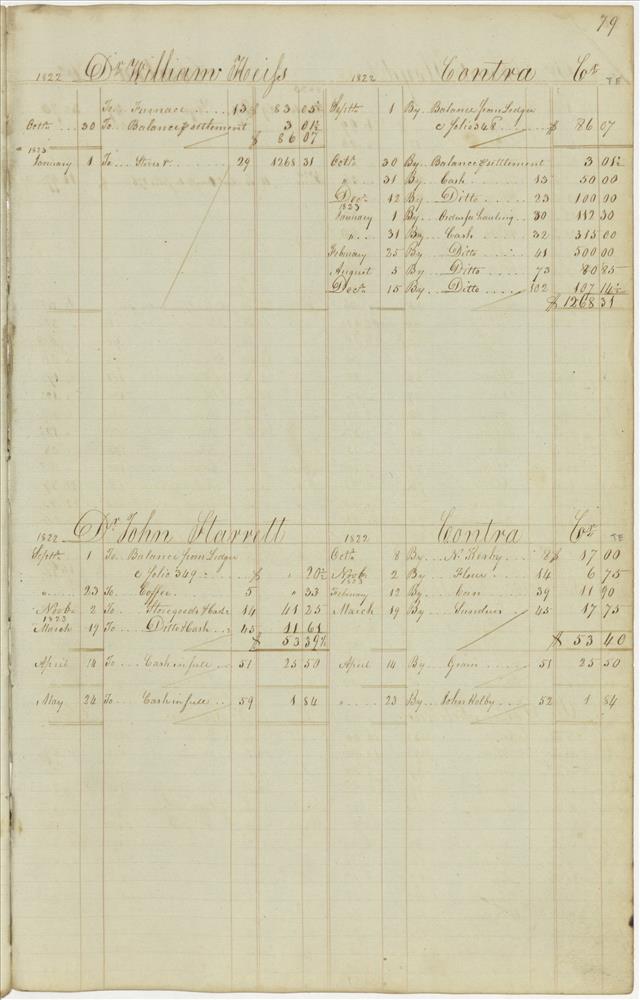 79
1822 Dr. William Heiss 1822 Contra Cr. TE
To Furnace 13 $ 83 05½ Septbr. 1 By Balance from Ledger
Octbr. 30 To Balance settlement 3 01½ C folio 348 $ 86 07
$ 86 07
1823
January 1 To Stoves &c. 29 1268 31 Octbr. 30 By Balance settlement 3 01½
" 31 By Cash 13 50 00
Decr. 12 By Ditto 23 100 00
1823
January 1 By Order for hauling 30 112 30
" 31 By Cash 32 315 00
February 25 By Ditto 41 500 00
August 5 By Ditto 73 80 85
Decr. 15 By Ditto 102 107 14½
$ 1268 31
1822 Dr. John Starrett 1822 Contra Cr. TE
Septbr. 1 To Balance from Ledger Octbr. 8 By N. Kerby 8 $ 17 00
C folio 349 $ " 20½ Novbr. 2 By Flour 14 6 75
1823
" 23 To Coffee 5 " 33 February 12 By Corn 39 11 90
Novbr. 2 To Storegoods & Cash 14 41 25 March 19 By Sundries 45 17 75
1823
March 19 To Ditto & Cash 45 11 61
$ 53 39½ $ 53 40
April 14 To Cash in full 51 25 50 April 14 By Grain 51 25 50
May 24 To Cash in full 59 1 84 " 23 By John 52 1 84